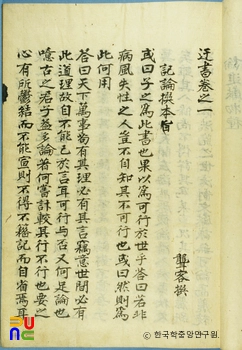 迂書卷之一
聾客撰
記論撰本旨
或曰子之爲此書也果以爲可行於世乎答曰若非
病風失性之人豈不自知其不可行也或曰然則爲
此何用
答曰天下萬事苟有其理必有其言竊意世間必有
此道理故自不能已於言耳可行与否又何足論也
噫古之君子益多論著何嘗計較其行不行也要之
心有所鬱結而不能宣則不得不籍記而自省焉耳
한국학중앙연구원